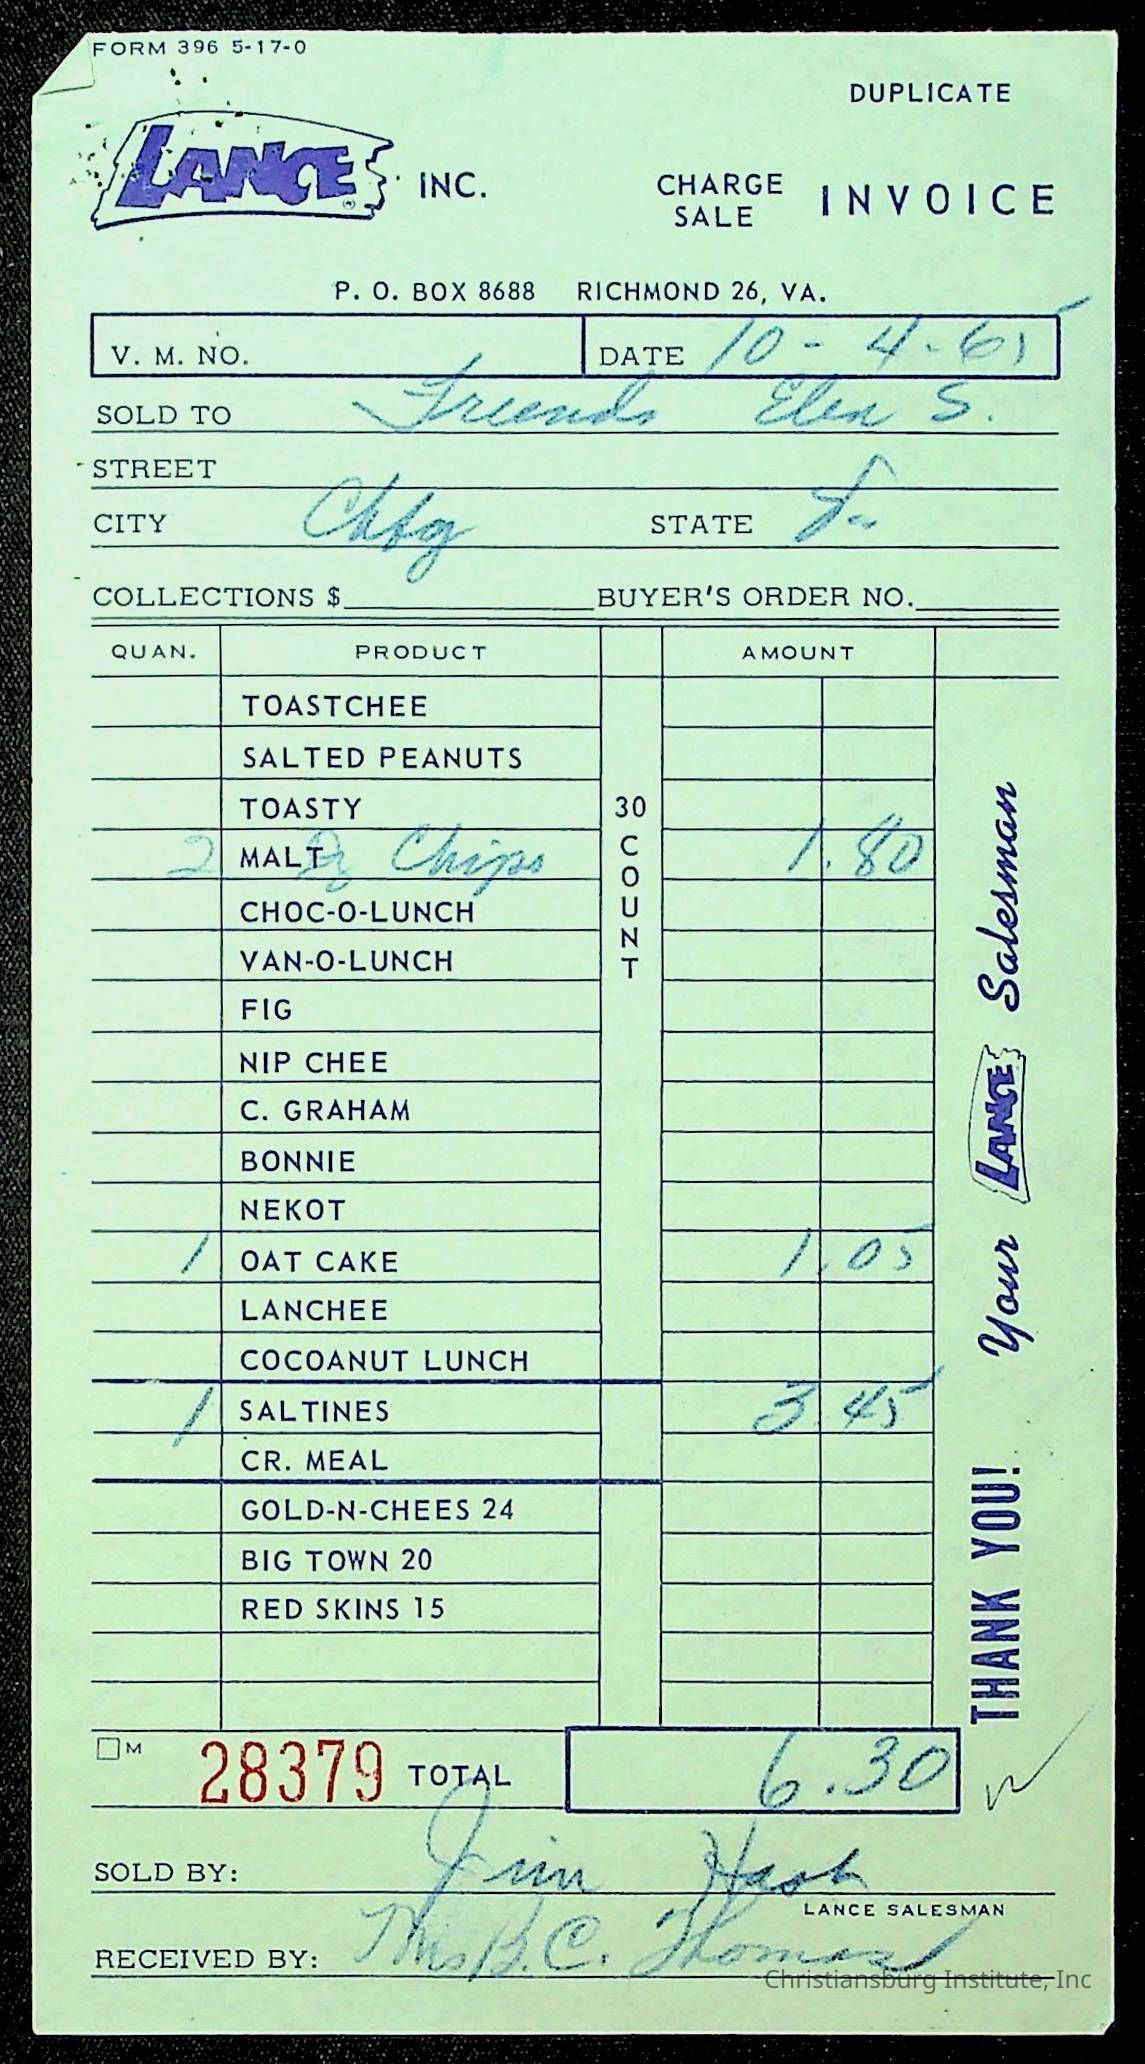 FORM 396 5-17-0
DUPLICATE
LANCE® INC. CHARGE SALE INVOICE
P. O. BOX 8688 RICHMOND 26, VA.
V. M. NO. DATE 10-4-65
SOLD TO Friends Elem S.
STREET
CITY Chbg STATE
COLLECTIONS $ BUYER'S ORDER NO.
QUAN. PRODUCT AMOUNT
TOASTCHEE
SALTED PEANUTS
TOASTY
2 MALT Chips 1.80
CHOC-O-LUNCH
VAN-O-LUNCH
FIG
NIP CHEE
C. GRAHAM
BONNIE
NEKOT
1 OAT CAKE 1.05
LANCHEE
COCOANUT LUNCH
1 SALTINES 3.45
CR. MEAL
GOLD-N-CHEES 24
BIG TOWN 20
RED SKINS 15
30 COUNT
Your LANCE Salesman
THANK YOU!
M 28379 TOTAL 6.30
SOLD BY: Jim Hash
LANCE SALESMAN
RECEIVED BY: Mrs B.C. Thomas
Christiansburg Institute, Inc